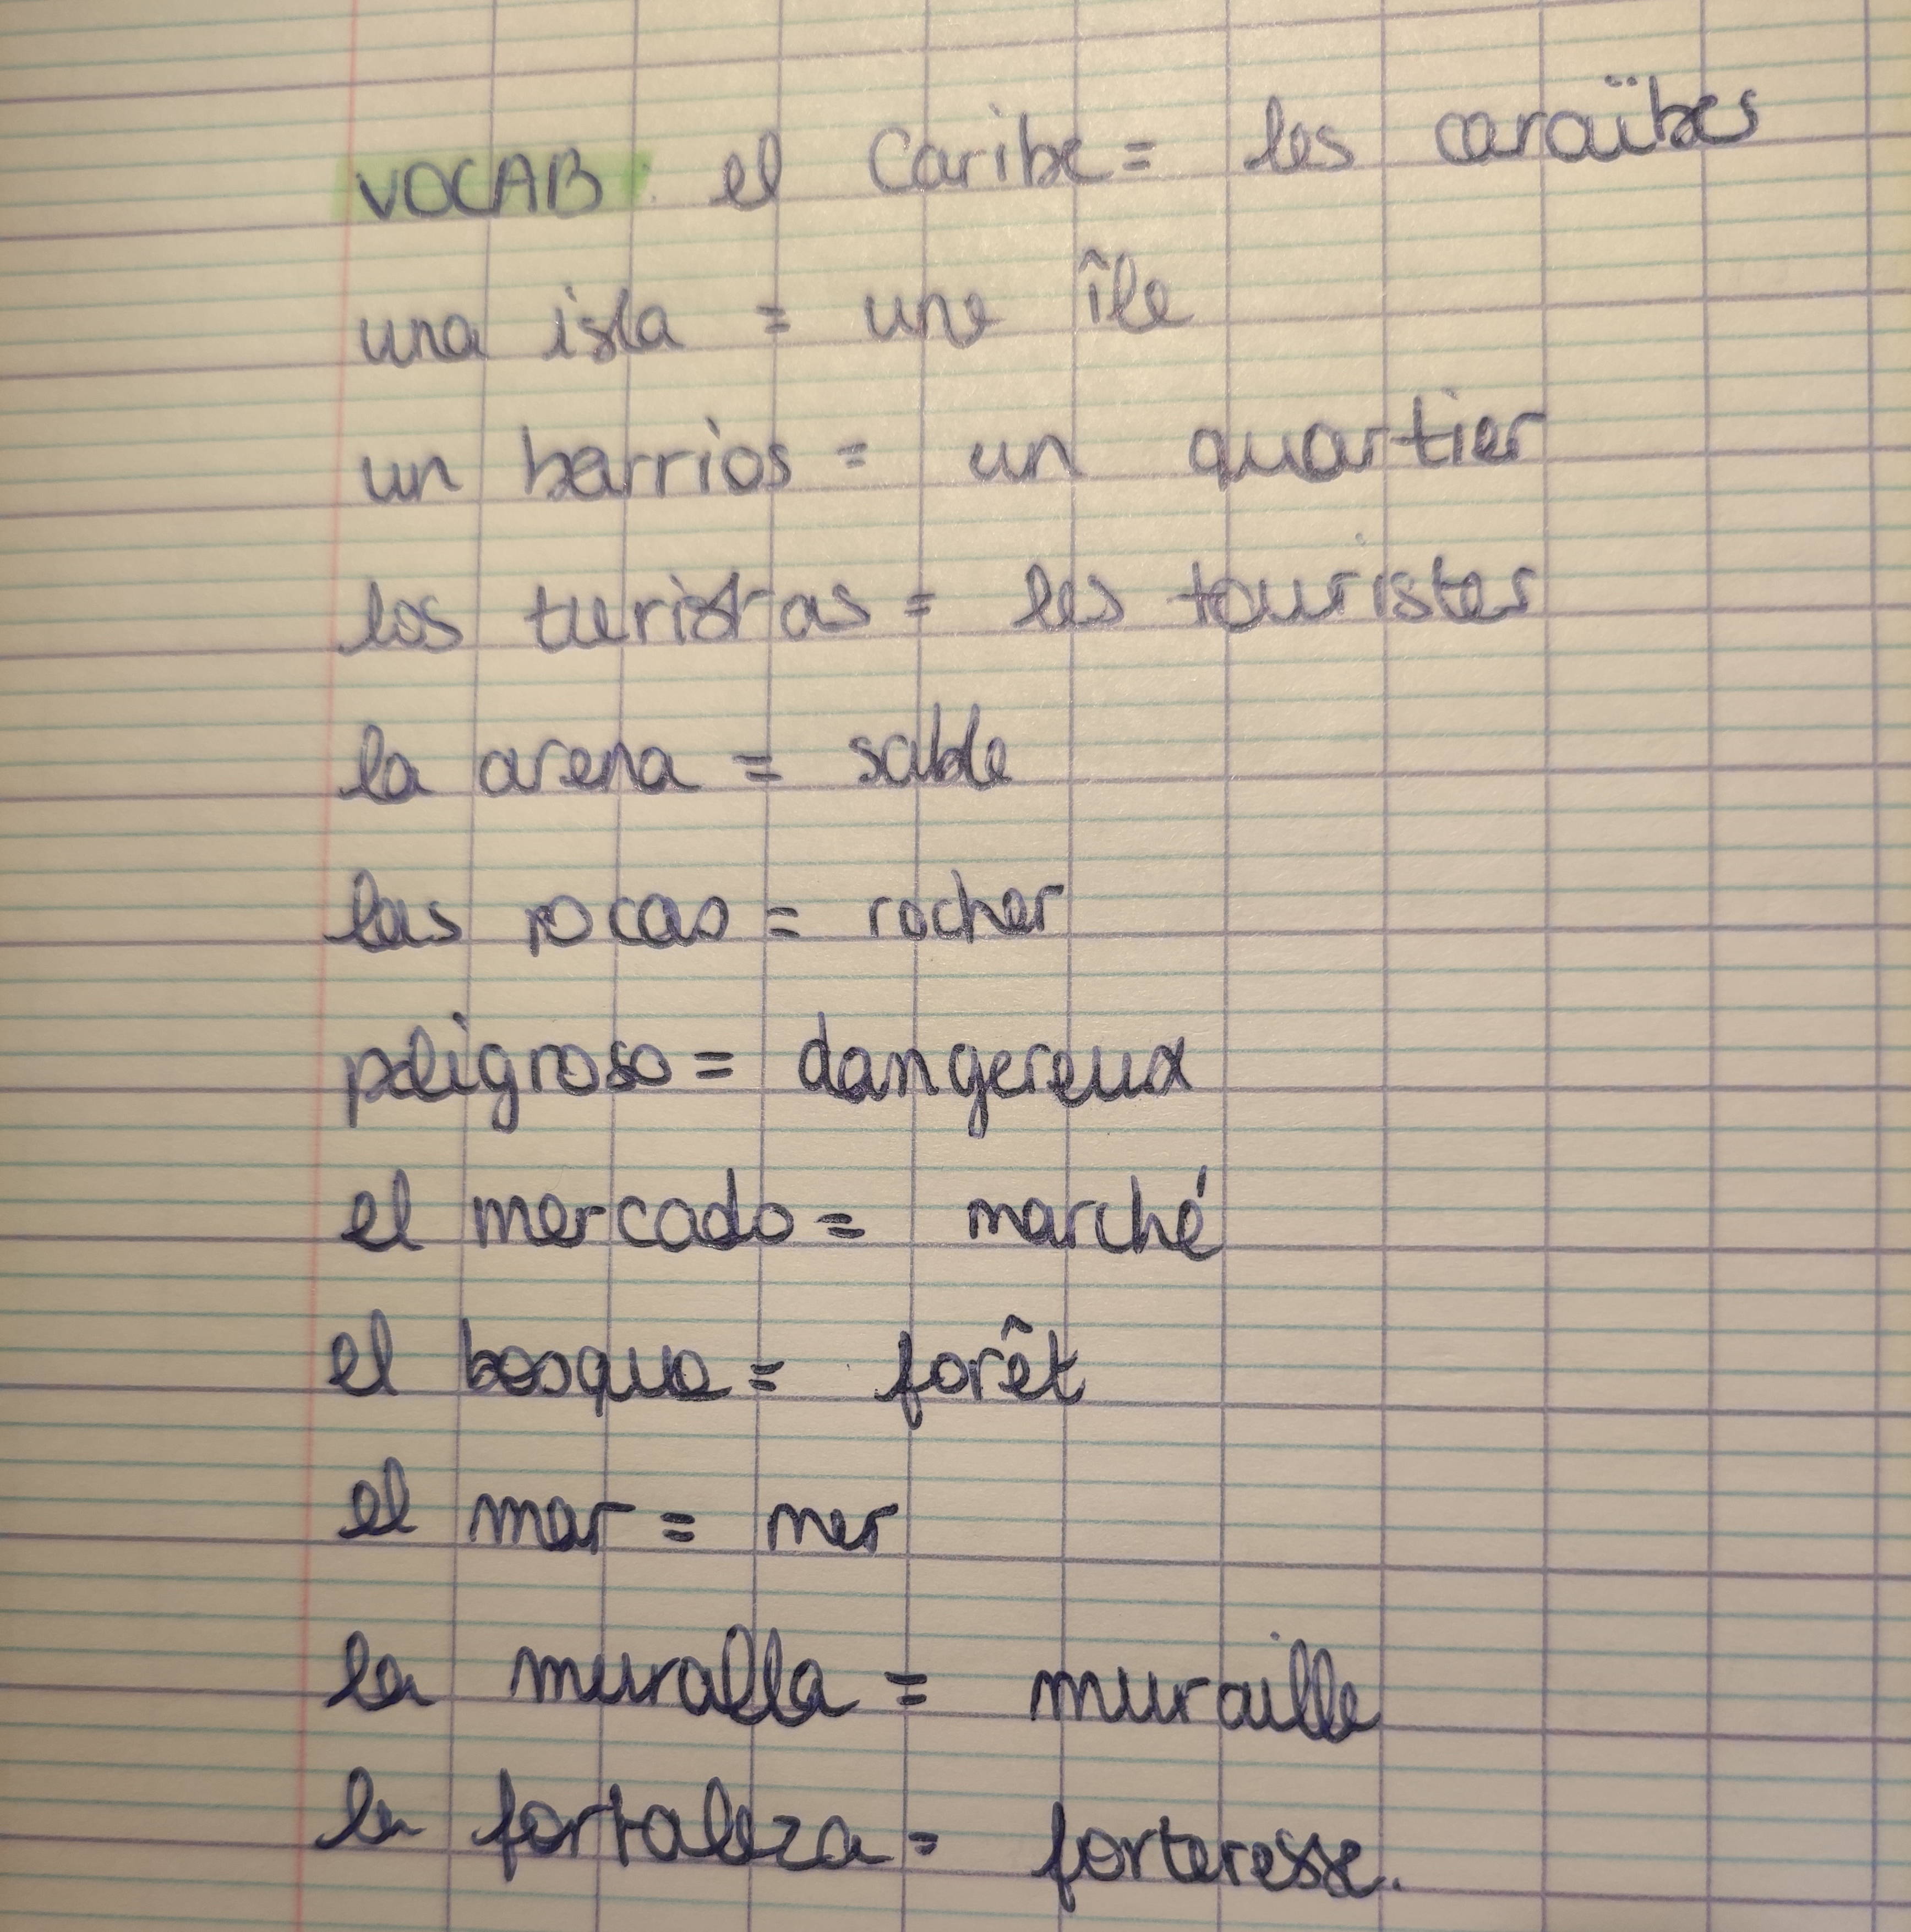 VOCAB : el Caribe = les caraïbes
una isla = une île
un barrios = un quartier
los turistas = les touristes
la arena = sable
las rocas = rocher
peligroso = dangereux
el mercado = marché
el bosque = forêt
el mar = mer
la muralla = muraille
la fortaleza = forteresse.